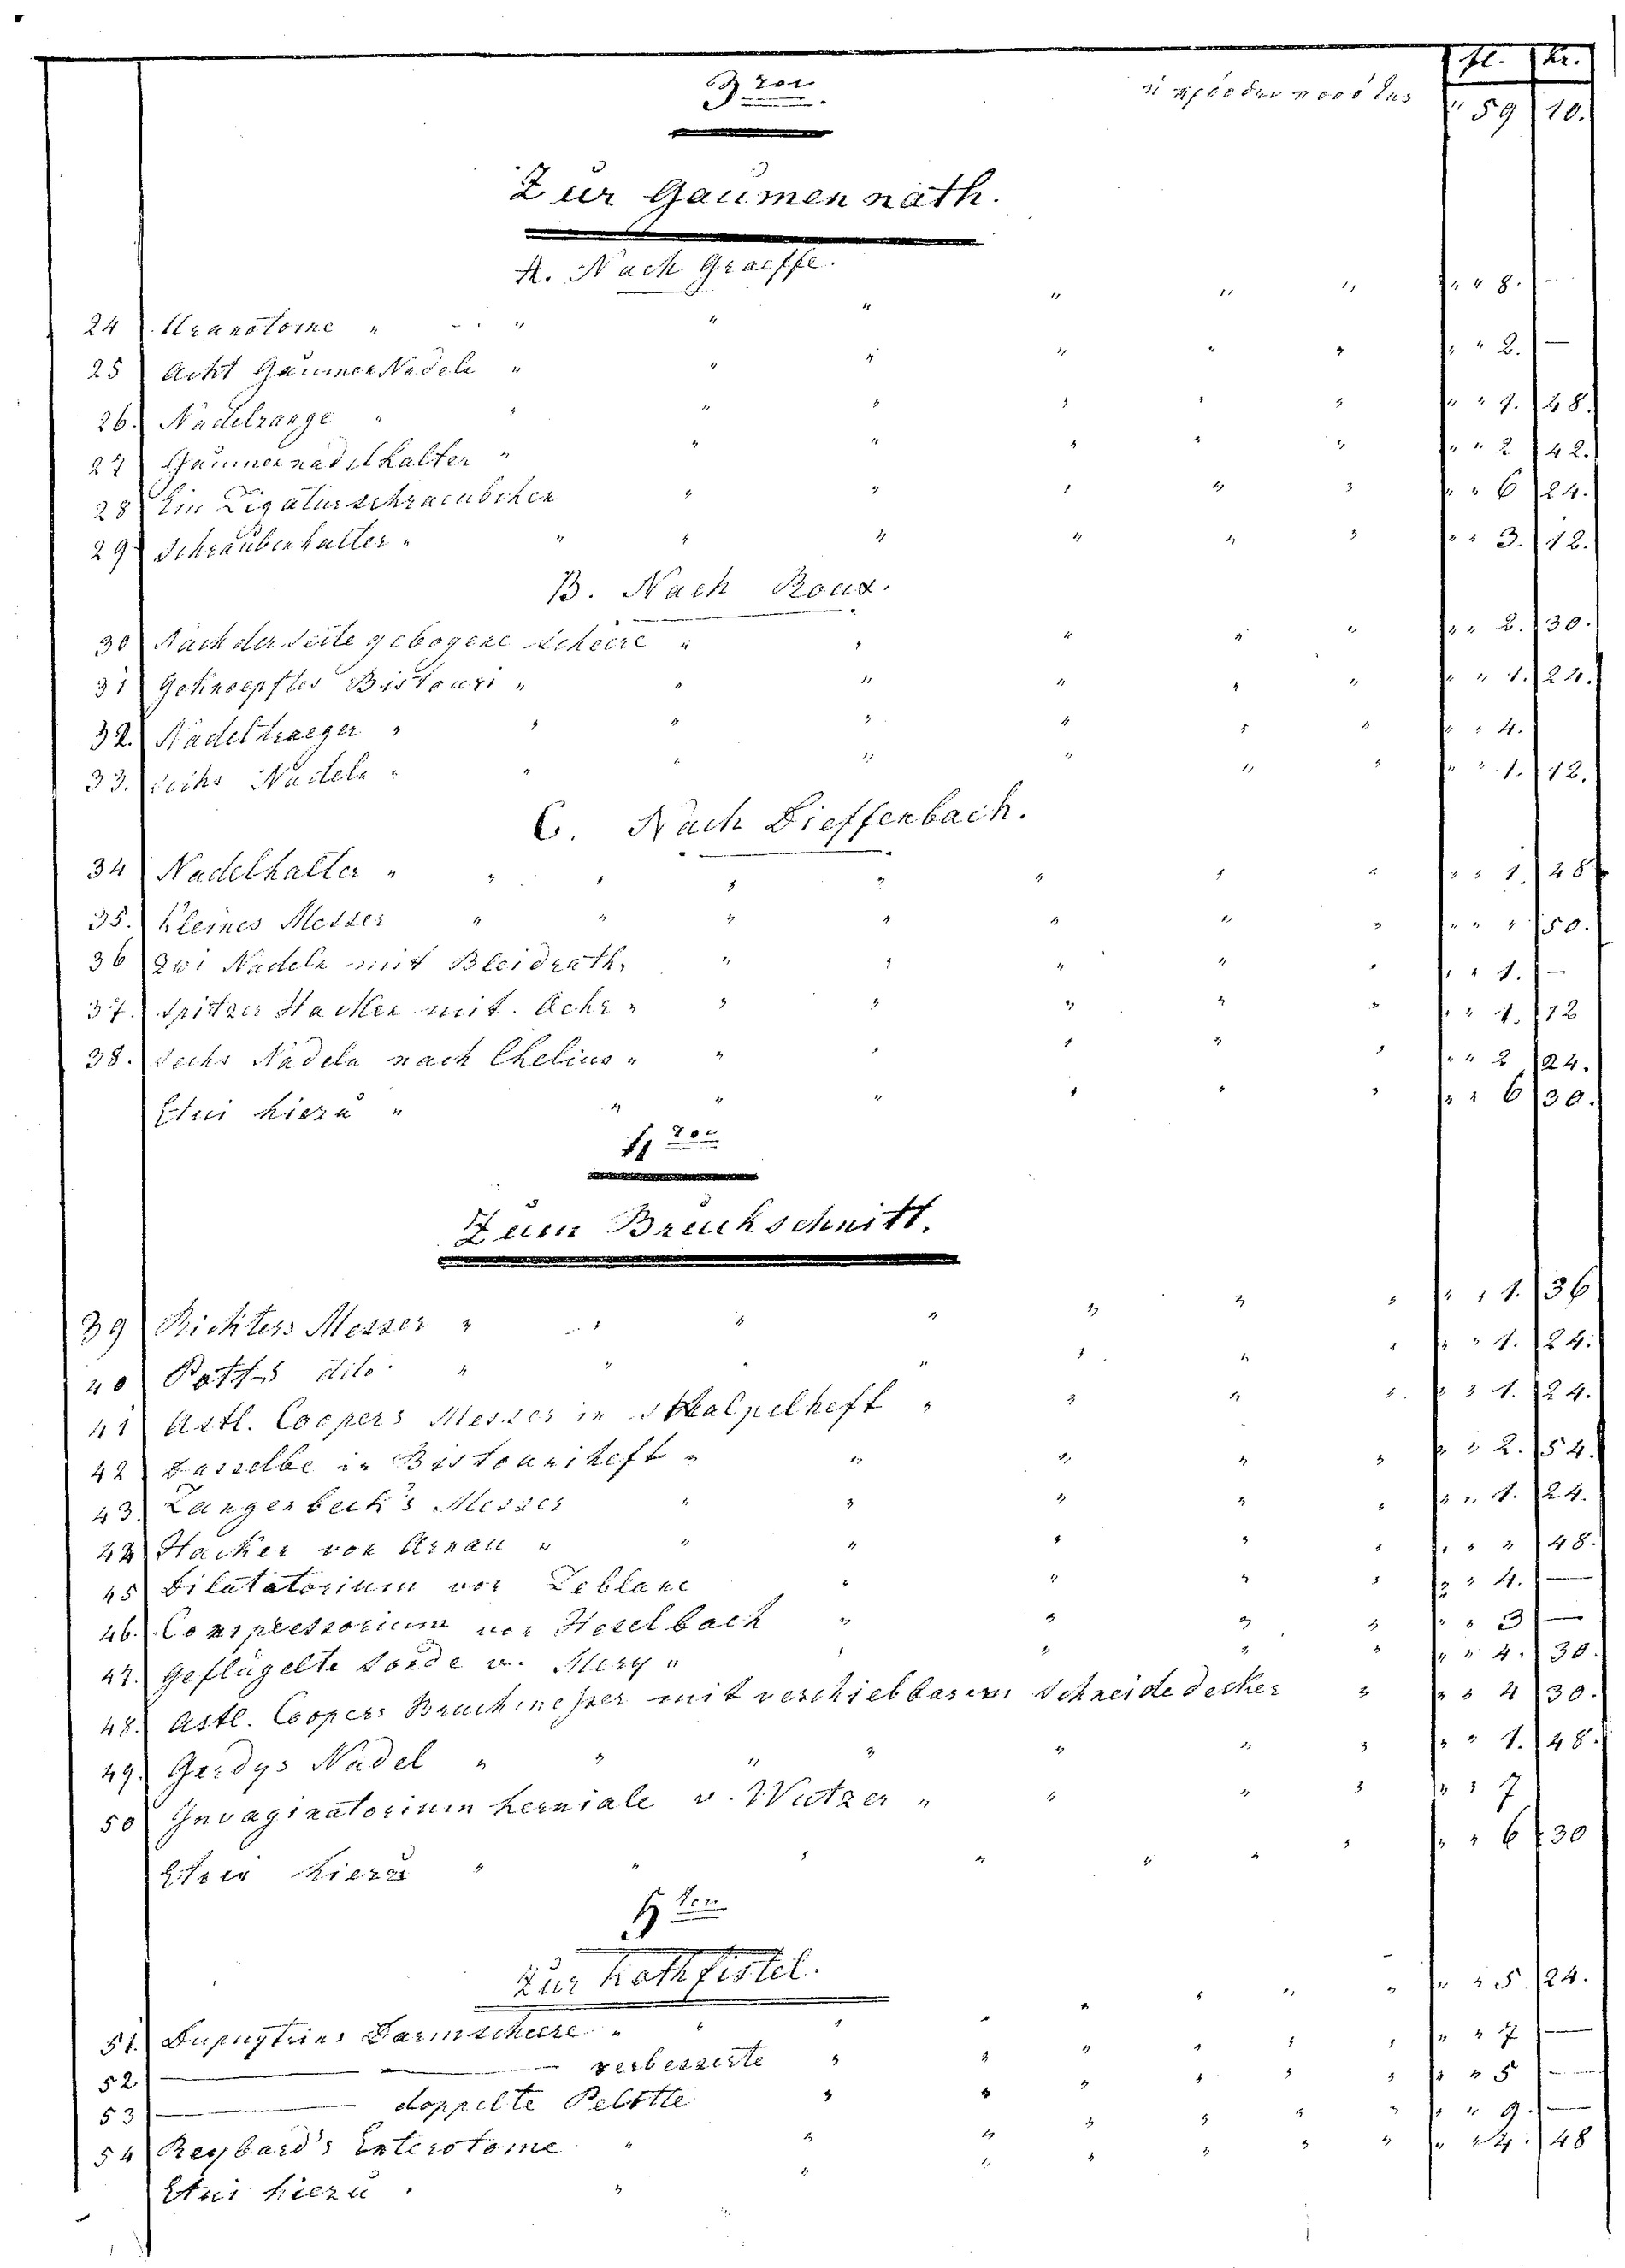 fl. kr.
3tens.
59 10.
Zur Gaumennath.
A. Nach Graeffe.
24 Uranotome " " " " " " " " " 8. —
25 Acht Gaumen Nadeln " " " " " " " " 2. —
26. Nadelzange " " " " " " " " " 1. 48.
27 Gaumennadelhalter " " " " " " " " 2 42.
28 Ein Ligaturschraeubchen " " " " " " " 6 24.
29 Schraubenhalter " " " " " " " " " 3. 12.
B. Nach Roux.
30 Nach der Seite gebogene Scheere " " " " " " " 2. 30.
31 Geknoepftes Bistouri " " " " " " " " 1. 24.
32. Nadeltraeger " " " " " " " " " 4.
33. Sechs Nadeln " " " " " " " " " 1. 12.
C. Nach Dieffenbach.
34 Nadelhalter " " " " " " " " " " 1. 48
35. Kleines Messer " " " " " " " " " " 50.
36 Zwei Nadeln mit Bleidrath, " " " " " " " 1. —
37. Spitzer Hacken mit Oehr " " " " " " " " 1. 12
38. Sechs Nadeln nach Chelius " " " " " " " " 2 24.
Etui hiezu " " " " " " " " 6 30.
4ten
Zum Bruchschnitt.
39 Richters Messer " " " " " " " " " 1. 36
40 Potts dito " " " " " " " " " 1. 24.
41 Astl. Coopers Messer in Skalpelheft " " " " " " 1. 24.
42 Dasselbe in Bistouriheft " " " " " " " 2. 54.
43. Langenbeck's Messer " " " " " " " " 1. 24.
44 Hacken von Arnau " " " " " " " " " 48.
45 Dilatatorium von Leblanc " " " " " " 4. —
46. Compressorium von Heselbach " " " " " " 3 —
47. Geflügelte Sonde v. Mery " " " " " " " 4. 30.
48. Astl. Coopers Bruchmesser mit verschiebbarem Schneidedecker " " " 4 30.
49. Gerdys Nadel " " " " " " " " " 1. 48.
50 Invaginatorium herniale v. Wutzer " " " " " " 7
Etui hiezu " " " " " " " " " 6 30
5ten
Zur Kothfistel.
51. Dupuytrens Darmscheere " " " " " " " " " 5 24.
52 — — verbesserte " " " " " " " " 7 —
53 — doppelte Pelotte " " " " " " " " 5 —
54 Reybard's Enterotome " " " " " " " " " 9. —
Etui hiezu " " " " " " " " " 4. 48